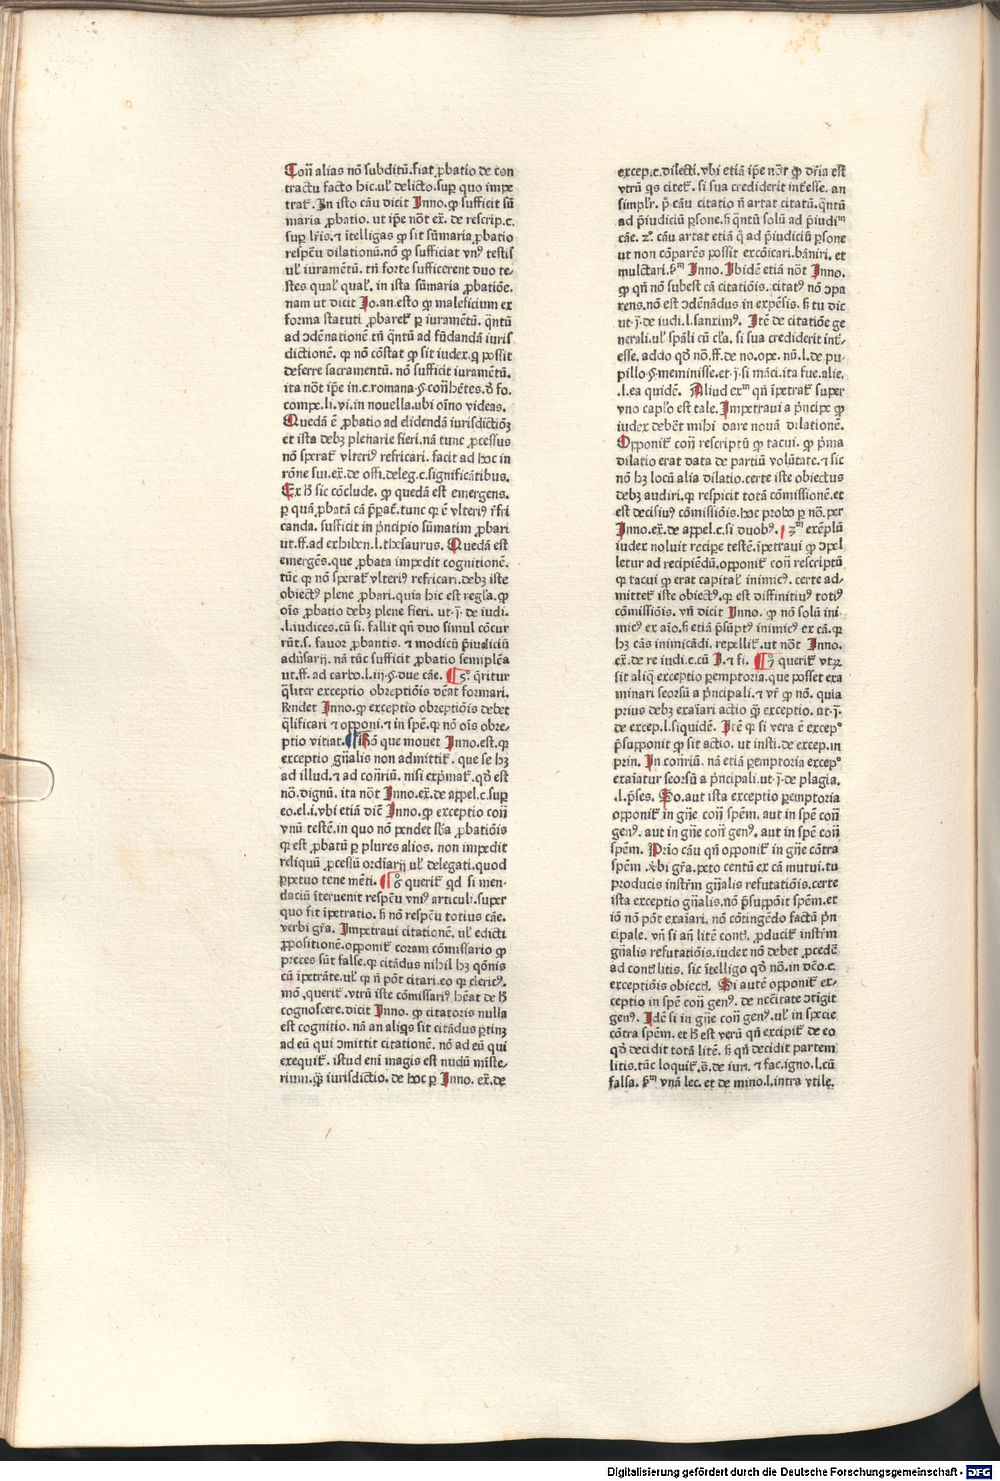 Coñ alias nõ subditũ.fiat ꝓbatio de con
tractu facto hic.uľ delicto.sup̱ quo impe
trať. In isto cãu dicit Inno.ꝙ sufficit sũ
maria ꝓbatio. ut ip̃e nõt ex̃. de rescrip.c.
sup̱ lr̃is.⁊ ĩtelligas ꝙ sit sũmaria ꝓbatio
respcũ dilationũ.nõ ꝙ sufficiat vnꝰ testis
uľ iuramẽtũ. tñ forte sufficerent duo te⸗
stes qualˀ qualˀ. in ista sũmaria ꝓbatiõe.
nam ut dicit Jo.an.esto ꝙ maleficium ex
forma statuti ꝓbareť p̱ iuramẽtũ. q̃ntũ
ad ꝯdẽnationẽ.tñ q̃ntũ ad fũdandã iuris
dictionẽ. ꝙ nõ cõstat ꝙ sit iudex.q̱ possit
deferre sacramentũ. nõ sufficit iuramẽtũ.
ita nõt ip̃e in.c.romana.§.coñhẽtes.ð fo.
compe.li.vi.in nouella.ubi oĩno videas.
Quedã ẽ ꝓbatio ad elidendã iurisdictiõꝫ
et ista debꝫ plenarie fieri.nã tunc ꝓcessus
nõ sperať vlteriꝰ refricari. facit ad hoc in
rõne sui.ex̃.de offi.deleg.c.significãtibus.
Ex h̃ sic cõclude. ꝙ quedã est emergens.
per quã ꝓbatã cã p̃paẽ.tunc ꝙ ẽ vlteriꝰ r̃fri
canda. sufficit in p̃ncipio sũmatim ꝓbari
ut.ff.ad exhiben.l.thesaurus. Quedã est
emergẽs.que ꝓbata impedit cognitionẽ.
tũc ꝙ nõ sperať vlteriꝰ refricari.debꝫ iste
obiectꝰ plene ꝓbari.quia hic est regl̃a.ꝙ
oĩs ꝓbatio debꝫ plene fieri. ut.j̃. de iudi.
.l.iudices.cũ si. fallit qñ duo simul cõcur
rũt.s. fauor ꝓbantis. ⁊ modicũ p̃iudiciũ
adũsarij. nã tũc sufficit ꝓbatio semiplẽa
ut.ff. ad carbo.l.iij.§.due cãe. ¶5°. q̃ritur
q̃liter exceptio obreptiõis dẽat formari.
Rñdet Inno.ꝙ exceptio obreptiõis debet
q̃lificari ⁊ opponi.⁊ in spẽ.ꝙ nõ oĩs obre⸗
ptio vitiat. ¶Rõ que mouet Inno.est.ꝙ
exceptio gñalis non admittiť. que se hꝫ
ad illud.⁊ ad coñriũ. nisi exp̃mať.qð est
nõ.dignũ. ita nõt Inno.ex̃.de appel.c.sup̱
eo.el.i.vbi etiã diĉ Inno.ꝙ exceptio coñ
vnũ testẽ.in quo nõ pendet sb̃a ꝓbatiõis
ꝙ est ꝓbatũ p̱ plures alios. non impedit
reliquũ ꝓcessũ ordĩarij uľ delegati.quod
p̱petuo tene mẽti. ¶6° queriť qd si men⸗
daciũ ĩteruenit respcũ vniꝰ articuli.super
quo fit ĩpetratio. ẞ nõ respcũ totius cãe.
verbi gr̃a. Impetraui citationẽ. uľ edicti
ꝓpositionẽ.opponiť coram cõmissario ꝙ
preces sũt false.ꝙ citãdus nihil hꝫ qõnis
cũ ĩpetrãte.uľ ꝙ ñ põt citari.eo ꝙ clericꝰ.
mõ.queriť.vtrũ iste cõmissariꝰ hẽat de h̃
cognoscere.dicit Inno. ꝙ citatoris nulla
est cognitio. nã an aliq̱s sit citãdus ꝑtinꝫ
ad eũ qui ꝯmittit citationẽ. nõ ad eũ qui
exequiť. istud enĩ magis est nudũ mĩste⸗
rium.q̃ iurisdictio. de hoc p̱ Inno. ex̃.de
excep.c.dilecti.vbi etiã ip̃e nõt ꝙ dr̃ia est
vtrũ q̱s citeť. si sua crediderit int̃esse. an
simplr̃. p̃ cãu citatio ñ artat citatũ.q̃ntũ
ad p̃iudiciũ p̱sone.ẞ q̃ntũ solũ ad p̃iudiᵐ
cãe. 2°. cãu artat etiã q̃ ad p̃iudiciũ p̱sone
ut non cõparẽs possit excõicari.bãniri. et
mulctari.p̃ᵐ Inno. Ibidẽ etiã nõt Inno.
ꝙ qñ nõ subest cã citatiõis. citatꝰ nõ ꝯpa
rens.nõ est ꝯdẽnãdus in expẽsis. ẞ tu dic
ut.j̃.de iudi.l.sanximꝰ. Itẽ de citatiõe ge
nerali.uľ sp̃ali cũ cl̃a. si sua crediderit int̃⸗
esse. addo qð nõ.ff.de no.ope. nũ.l.de pu⸗
pillo.§.meminisse.et.j̃.si mãci.ita fue.alie.
.l.ea quidẽ. Aliud exᵐ qñ ĩpetrať super
vno cap̃lo est tale. Impetraui a p̃ncipe ꝙ
iudex debet̃ mihi dare nouã dilationẽ.
Opponiť coñ rescriptũ ꝙ tacui. ꝙ p̃ma
dilatio erat data de partiũ volũtate.⁊ sic
nõ hꝫ locũ alia dilatio.certe iste obiectus
debꝫ audiri.ꝙ respicit totã cõmissionẽ.et
est decisiuꝰ cõmissiõis.hoc probo p̱ nõ.per
Inno.ex̃.de appel.c.si duobꝰ. 2ᵐ exẽplũ
iudex noluit recip̱e testẽ.ĩpetraui ꝙ ꝯpel
letur ad recipiẽdũ.opponiť coñ rescriptũ
ꝙ tacui ꝙ erat capitalˀ inimicꝰ. certe ad⸗
mitteť iste obiectꝰ.ꝙ est diffinitiuꝰ totiꝰ
cõmissiõis. vñ dicit Inno. ꝙ nõ solũ ini⸗
micꝰ ex aĩo.ẞ etiã p̃sũptꝰ inimicꝰ ex cã.ꝙ
hꝫ cãs inimicãdi. repelliť.ut nõt Inno.
ex̃.de re iudi.c.cũ J.⁊ fi. ¶7 queriť vtꝝ
sit aliq̃ exceptio p̱emptoria.que posset exa
minari seorsũ a p̃ncipali.⁊ vr̃ ꝙ nõ. quia
prius debꝫ exaĩari actio q̃ exceptio. ut.j̃.
de excep.l.siquidẽ. Itẽ ꝙ si vera ẽ excep°
p̃supponit ꝙ sit actio. ut insti.de excep.in
prin. In coñriũ. nã etiã p̱emptoria excep°
exaĩatur seorsũ a p̃ncipali.ut.j̃.de plagia.
.l.p̃ses. So.aut ista exceptio p̱emptoria
opponiť in gñe coñ spẽm. aut in spẽ coñ
genꝰ. aut in gñe coñ genꝰ. aut in spẽ coñ
spẽm. Prio cãu qñ opponiť in gñe cõtra
spẽm.vbi gr̃a.peto centũ ex cã mutui.tu
producis instr̃m gñalis refutatiõis.certe
ista exceptio gñalis.nõ p̃supponit spẽm.et
iõ nõ põt exaĩari. nõ cõtingẽdo factũ p̃n
cipale. vñ si añ litẽ contꝭ. ꝓduciť instr̃m
gñalis refutatiõis.iudex nõ debet ꝓcedẽ
ad contꝭ litis. sic ĩtelligo qð nõ.in dẽo.c.
exceptiõis obiectꝭ. Si autẽ opponiť ex⸗
ceptio in spẽ coñ genꝰ. de nccitate ꝯtigit
genꝰ. Idẽ si in gñe coñ genꝰ.uľ in specie
cõtra spẽm. et h̃ est verũ qñ excipiť de eo
qð decidit totã litẽ. ẞ qñ decidit partem
litis.tũc loquiť.s̃.de iuri. ⁊ fac.igno.l.cũ
falsa. p̃ᵐ vnã lec. et de mino.l.intra vtile.
Digitalisierung gefördert durch die Deutsche Forschungsgemeinschaft - DFG